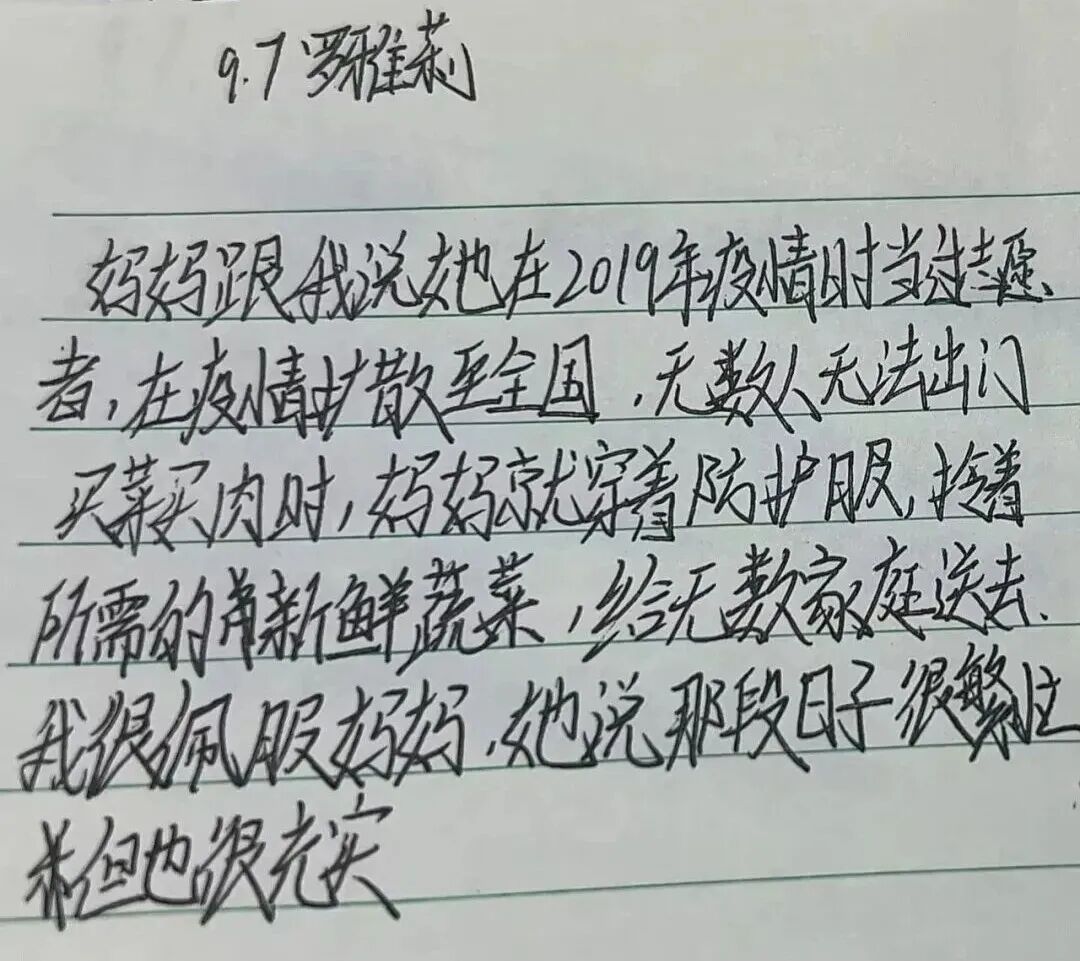 9.7 罗雅莉
妈妈跟我说她在2019年疫情时当过志愿
者,在疫情扩散至全国,无数人无法出门
买菜买肉时,妈妈就穿着防护服,拎着
所需的新鲜蔬菜,给无数家庭送去.
我很佩服妈妈,她说那段日子很繁忙
但也很充实